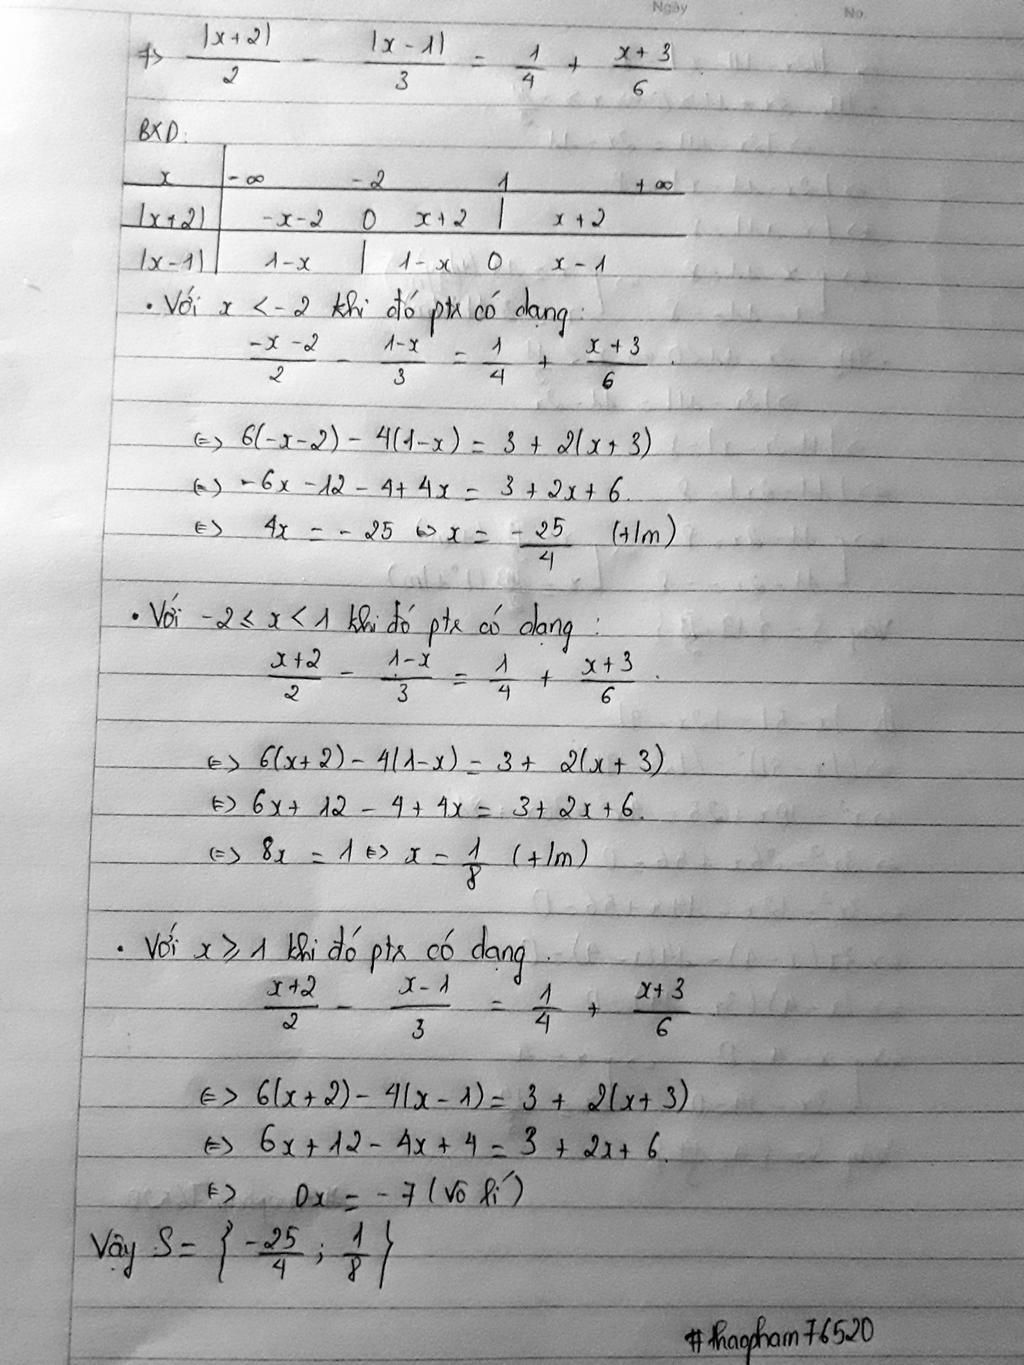 Ngày No.
f> |x+2|/2 - |x-1|/3 = 1/4 + x+3/6
BXD:
x -∞ -2 1 +∞
|x+2| -x-2 0 x+2 | x+2
|x-1| 1-x | 1-x 0 x-1
• Với x < -2 khi đó ptx có dạng:
-x-2/2 - 1-x/3 = 1/4 + x+3/6
<=> 6(-x-2) - 4(1-x) = 3 + 2(x+3)
<=> -6x - 12 - 4 + 4x = 3 + 2x + 6.
<=> 4x = -25 <=> x = -25/4 (t/m)
• Với -2 ≤ x < 1 khi đó ptx có dạng:
x+2/2 - 1-x/3 = 1/4 + x+3/6.
<=> 6(x+2) - 4(1-x) = 3 + 2(x+3)
<=> 6x + 12 - 4 + 4x = 3 + 2x + 6.
<=> 8x = 1 <=> x = 1/8 (t/m)
• Với x ≥ 1 khi đó ptx có dạng.
x+2/2 - x-1/3 = 1/4 + x+3/6
<=> 6(x+2) - 4(x-1) = 3 + 2(x+3)
<=> 6x + 12 - 4x + 4 = 3 + 2x + 6.
<=> 0x = -7 (vô lí)
Vậy S = { -25/4 ; 1/8 }
#thaopham76520